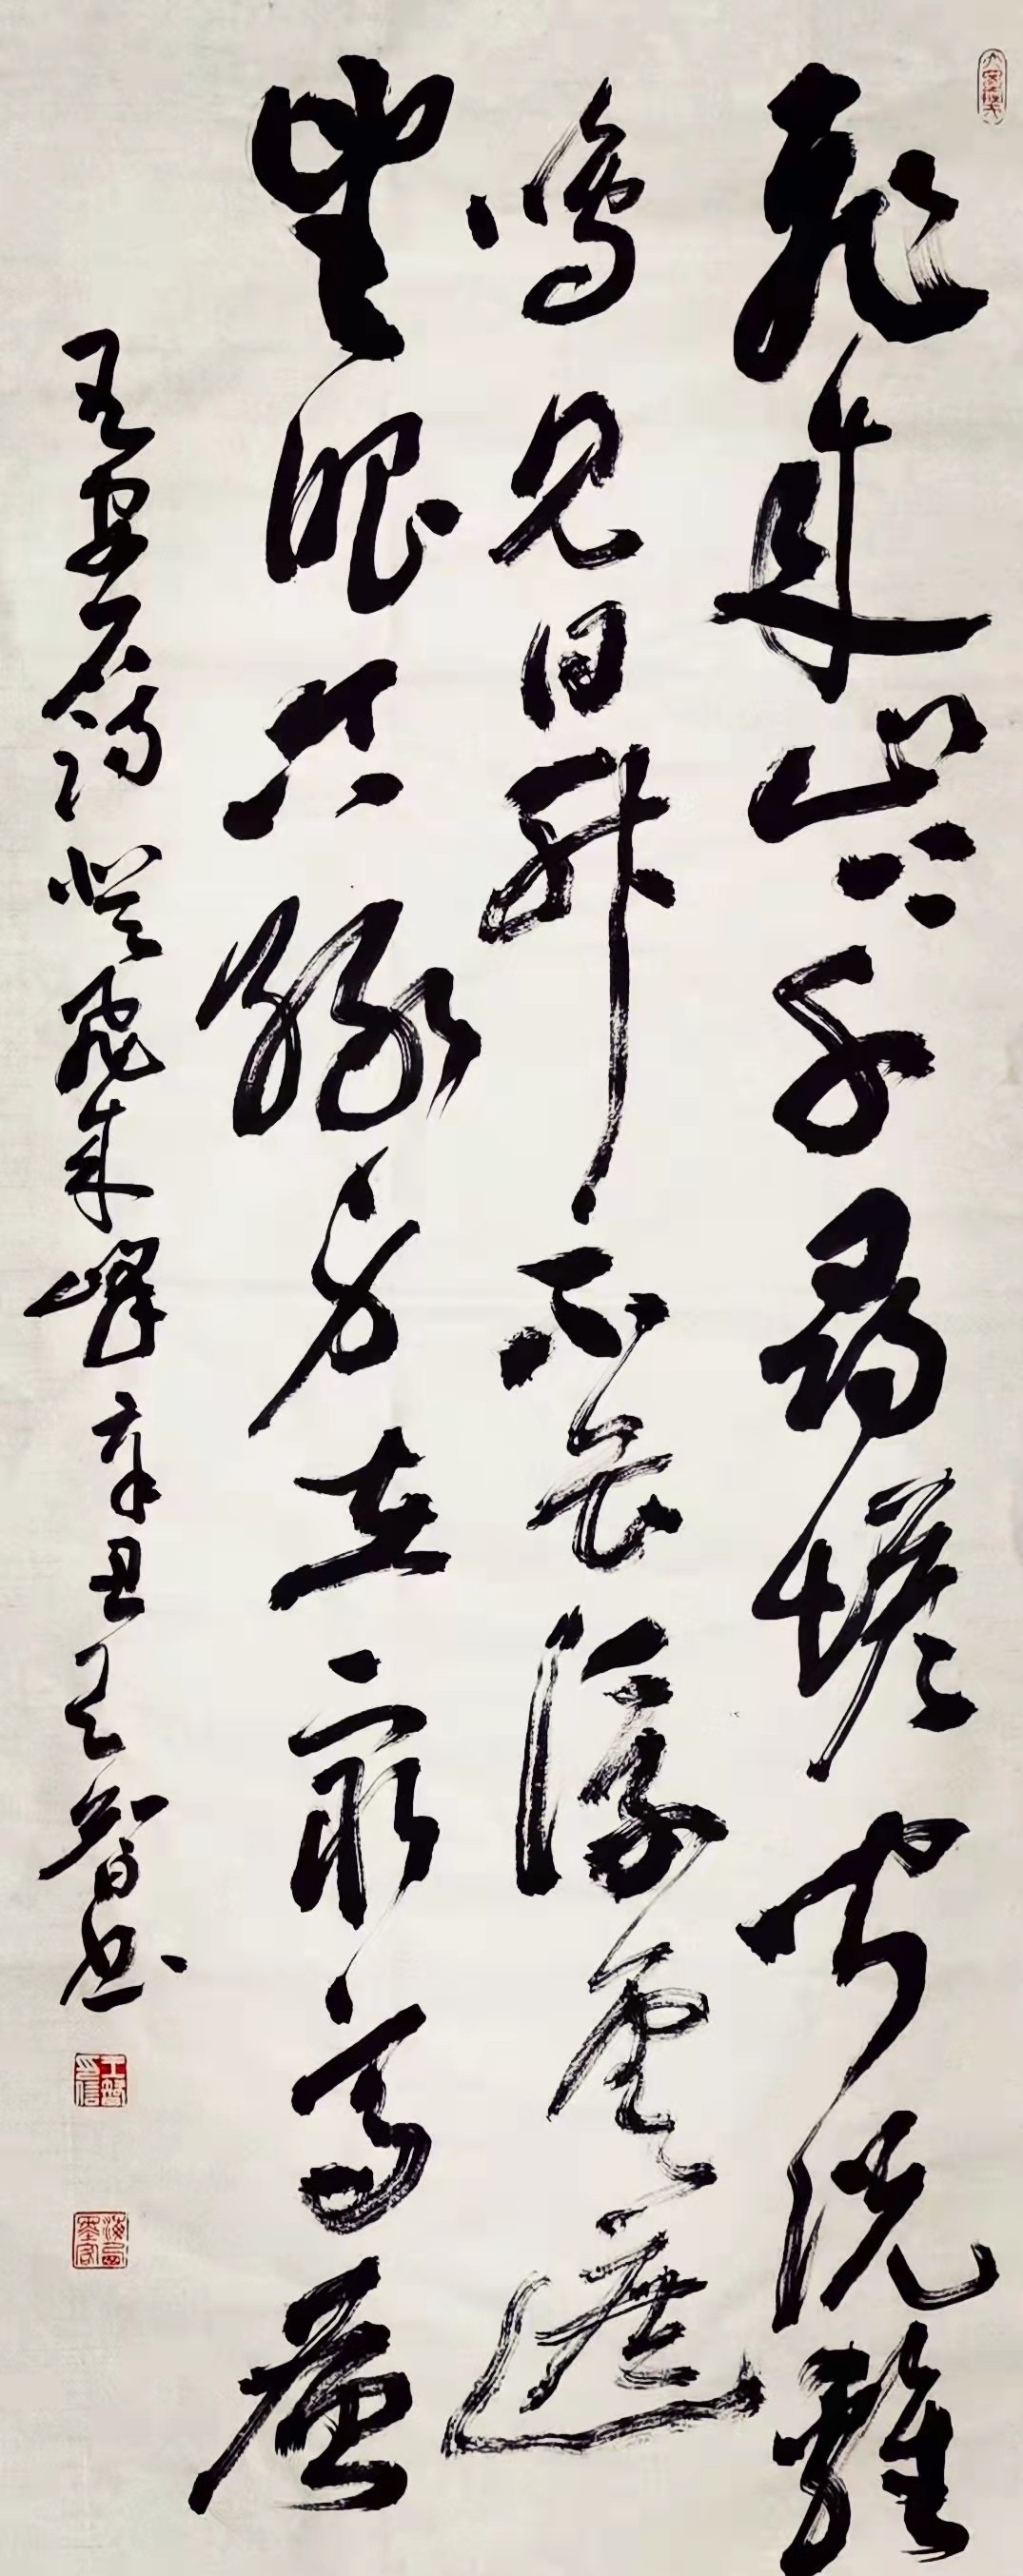 飛來山上千尋塔聞說雞
鳴見日升不畏浮雲遮
望眼只緣身在最高層
王安石詩登飛來峰辛丑王智書
王智印信